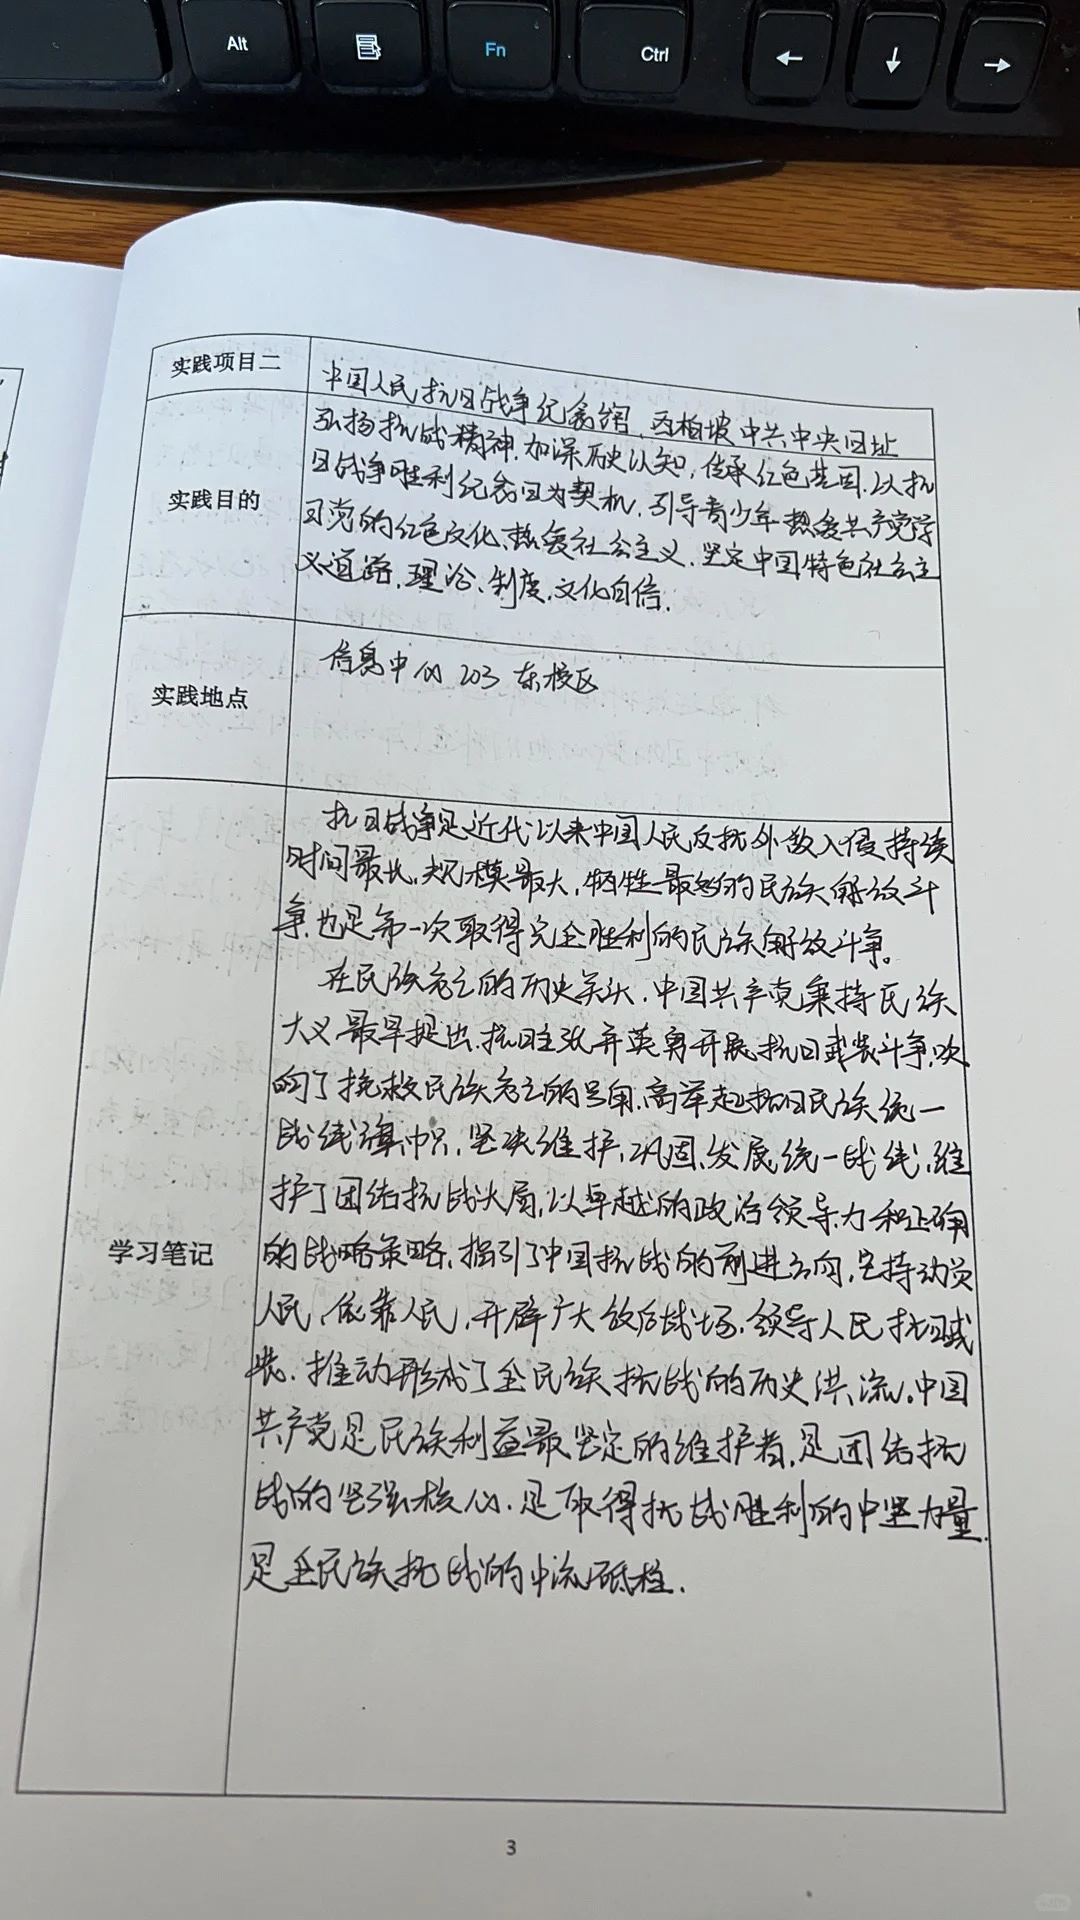 Alt
Fn
Ctrl
←
↓
→
实践项目二
中国人民抗日战争纪念馆、西柏坡中共中央旧址
实践目的
弘扬抗战精神,加深历史认知,传承红色基因,以抗
日战争胜利纪念日为契机,引导青少年热爱共产党学
习党的红色文化、热爱社会主义,坚定中国特色社会主
义道路、理论、制度、文化自信.
实践地点
信息中心 203 东校区
学习笔记
抗日战争是近代以来中国人民反抗外敌入侵持续
时间最长,规模最大,牺牲最多的民族解放斗
争,也是第一次取得完全胜利的民族解放斗争。
在民族危亡的历史关头,中国共产党秉持民族
大义最早提出抗日主张并英勇开展抗日武装斗争,吹
响了挽救民族危亡的号角,高举起抗日民族统一
战线旗帜,坚决维护、巩固、发展统一战线,维
护了团结抗战大局,以卓越的政治领导力和正确
的战略策略,指引了中国抗战的前进方向,坚持动员
人民,依靠人民,开辟广大敌后战场,领导人民抗日武
装,推动形成了全民族抗战的历史洪流,中国
共产党是民族利益最坚定的维护者,是团结抗
战的坚强核心,是取得抗战胜利的中坚力量,
是全民族抗战的中流砥柱.
3